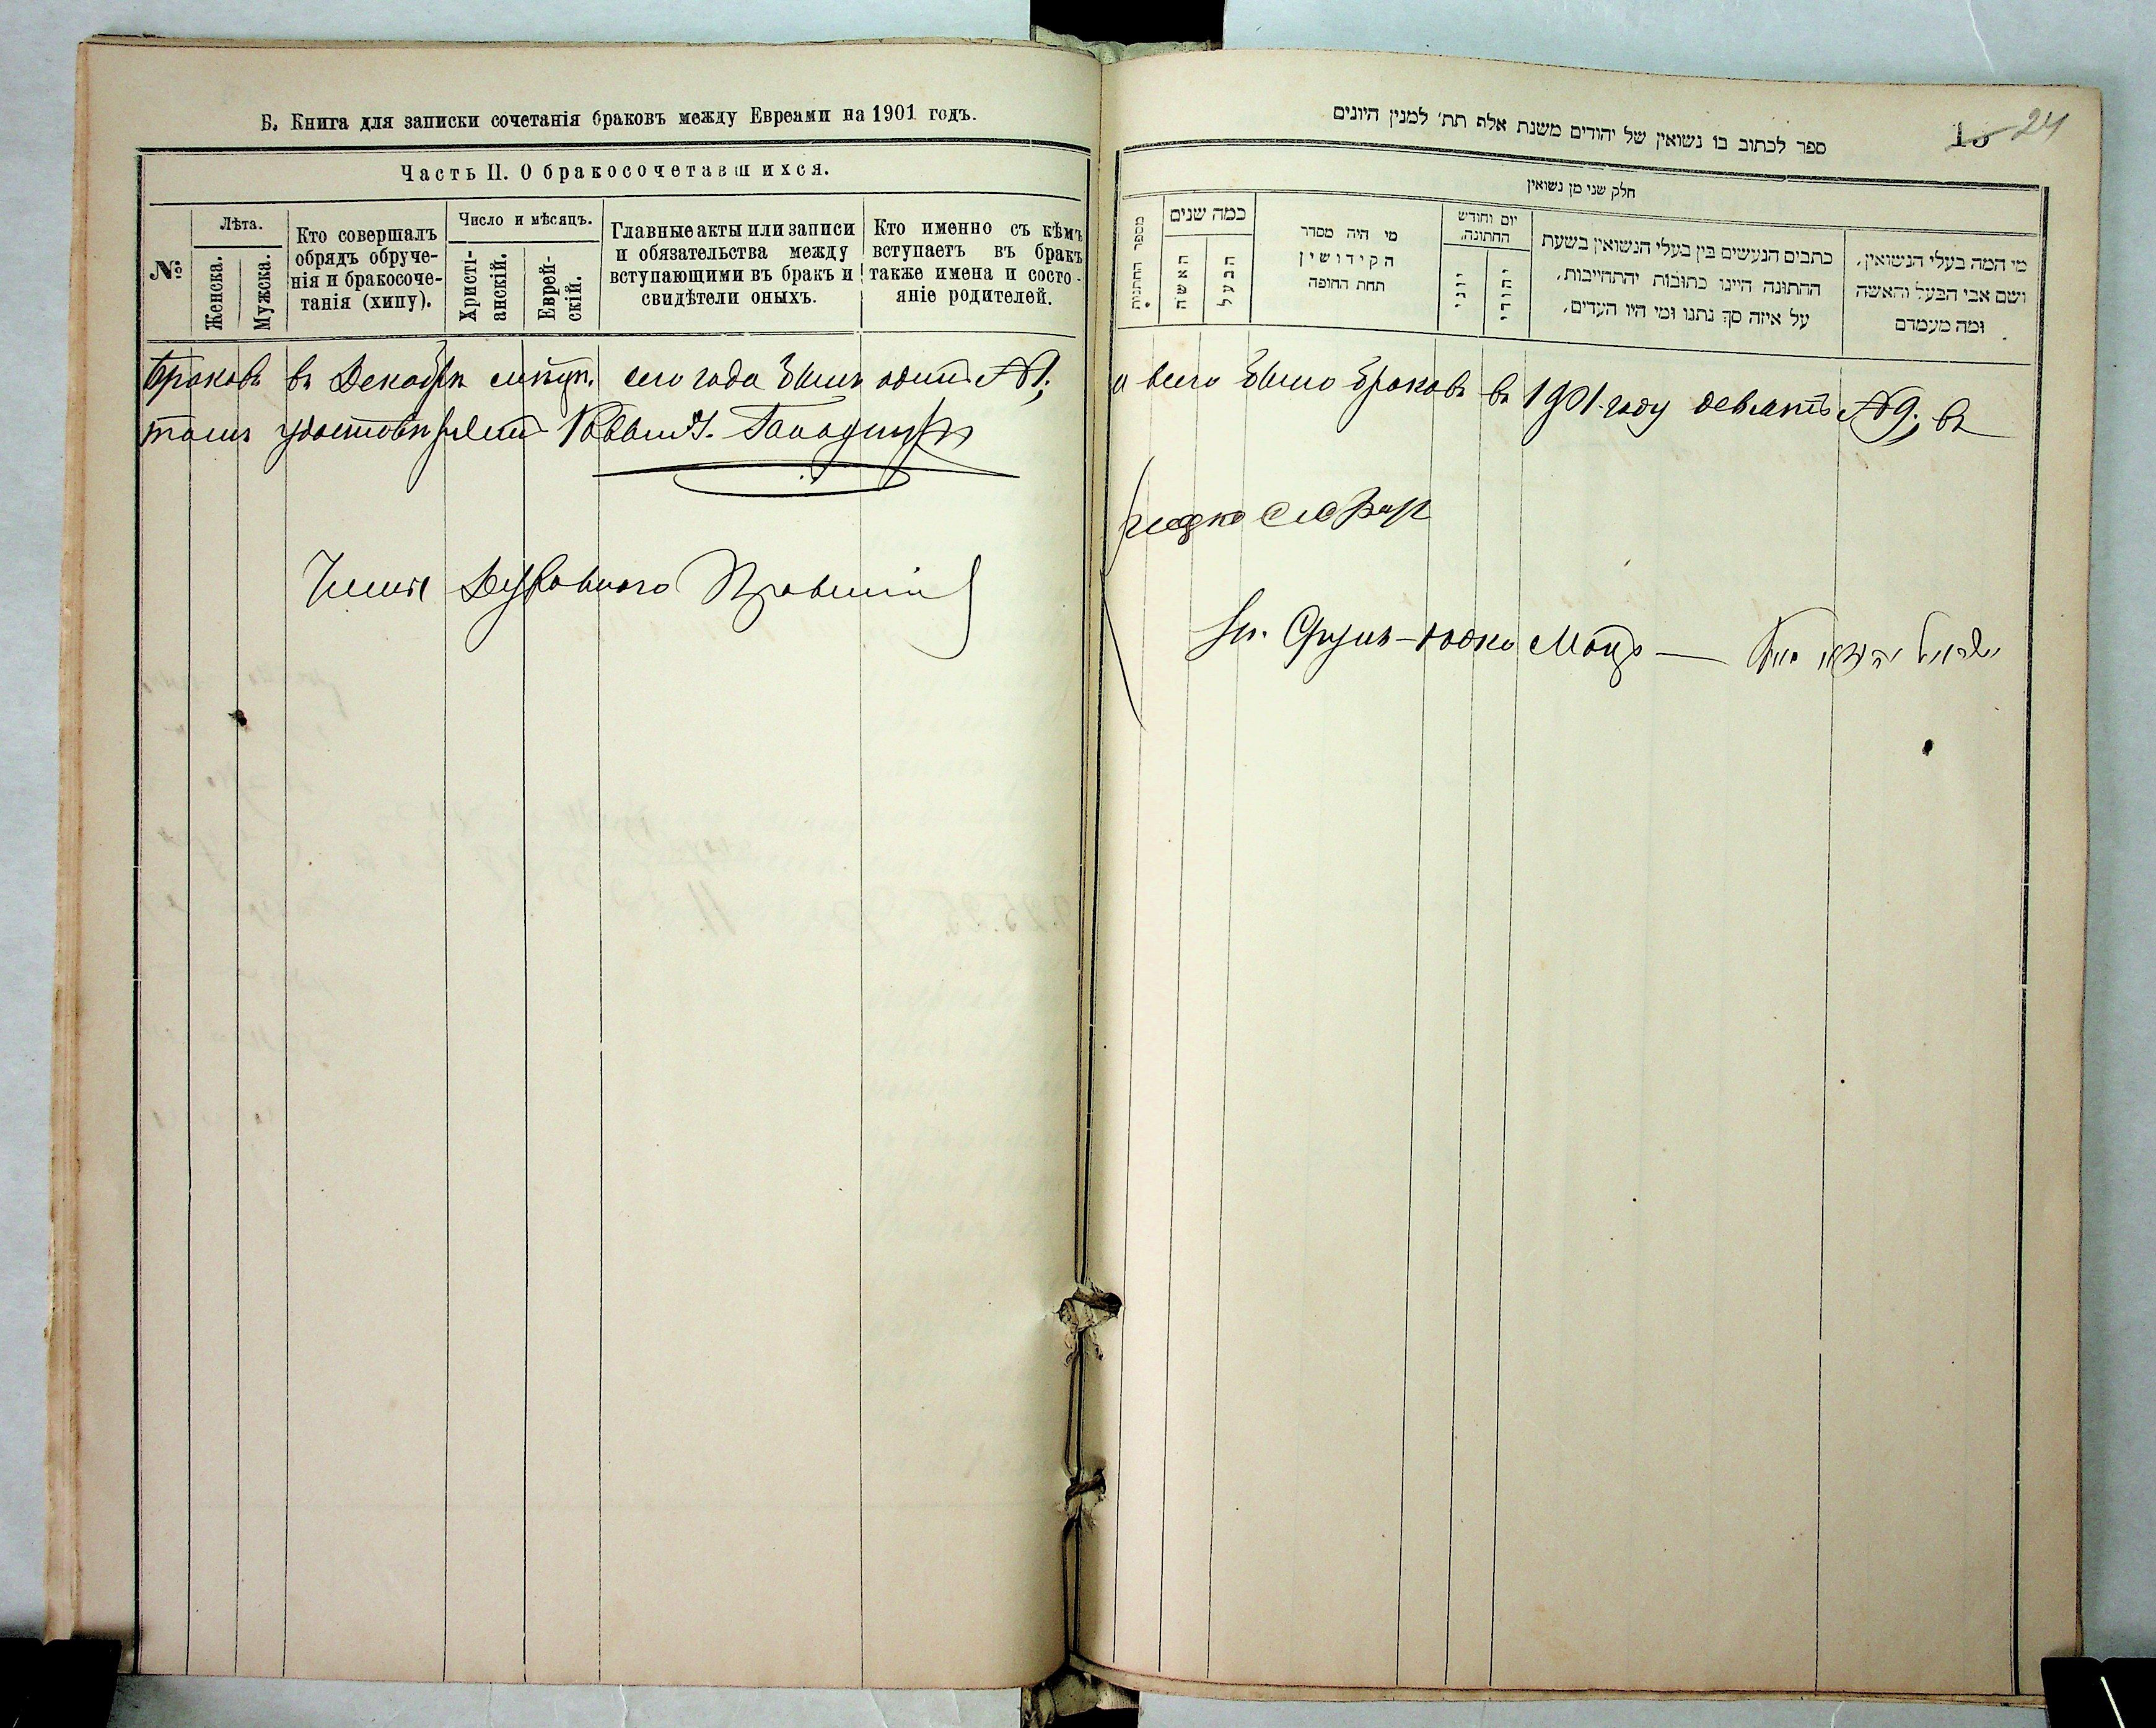 Б. Книга для записки сочетанія браковъ между Евреями на 1901 годъ.
Часть II. О бракосочетавшихся.
№
Лѣта.
Женска.
Мужска.
Кто совершалъ
обрядъ обруче-
нія и бракосоче-
танія (хипу).
Число и мѣсяцъ.
Христі-
анскій.
Еврей-
скій.
Главные акты или записи
и обязательства между
вступающими въ бракъ и
свидѣтели оныхъ.
Кто именно съ кѣмъ
вступаетъ въ бракъ
также имена и состо-
яніе родителей.
Браковъ въ Декабрѣ сего года былъ одинъ №1;
томъ удостовѣряетъ Раввинъ
Члены Духовнаго Правленія
ספר לכתוב בו נשואין של יהודים משנת אלף תת׳ למנין היונים
15 24
חלק שני מן נשואין
מספר החתנות
כמה שנים
האשה
הבעל
מי היה מסדר
הקידושין
תחת החופה
יום וחודש
החתונה.
יוני
יהודי
כתבים הנעשים בין בעלי הנשואין בשעת
החתונה היינו כתובות יהתחייבות,
על איזה סך נתנו ומי היו העדים,
מי המה בעלי הנשואין,
ושם אבי הבעל והאשה
ומה מעמדם
и всего было браковъ въ 1901 году девять №9; въ